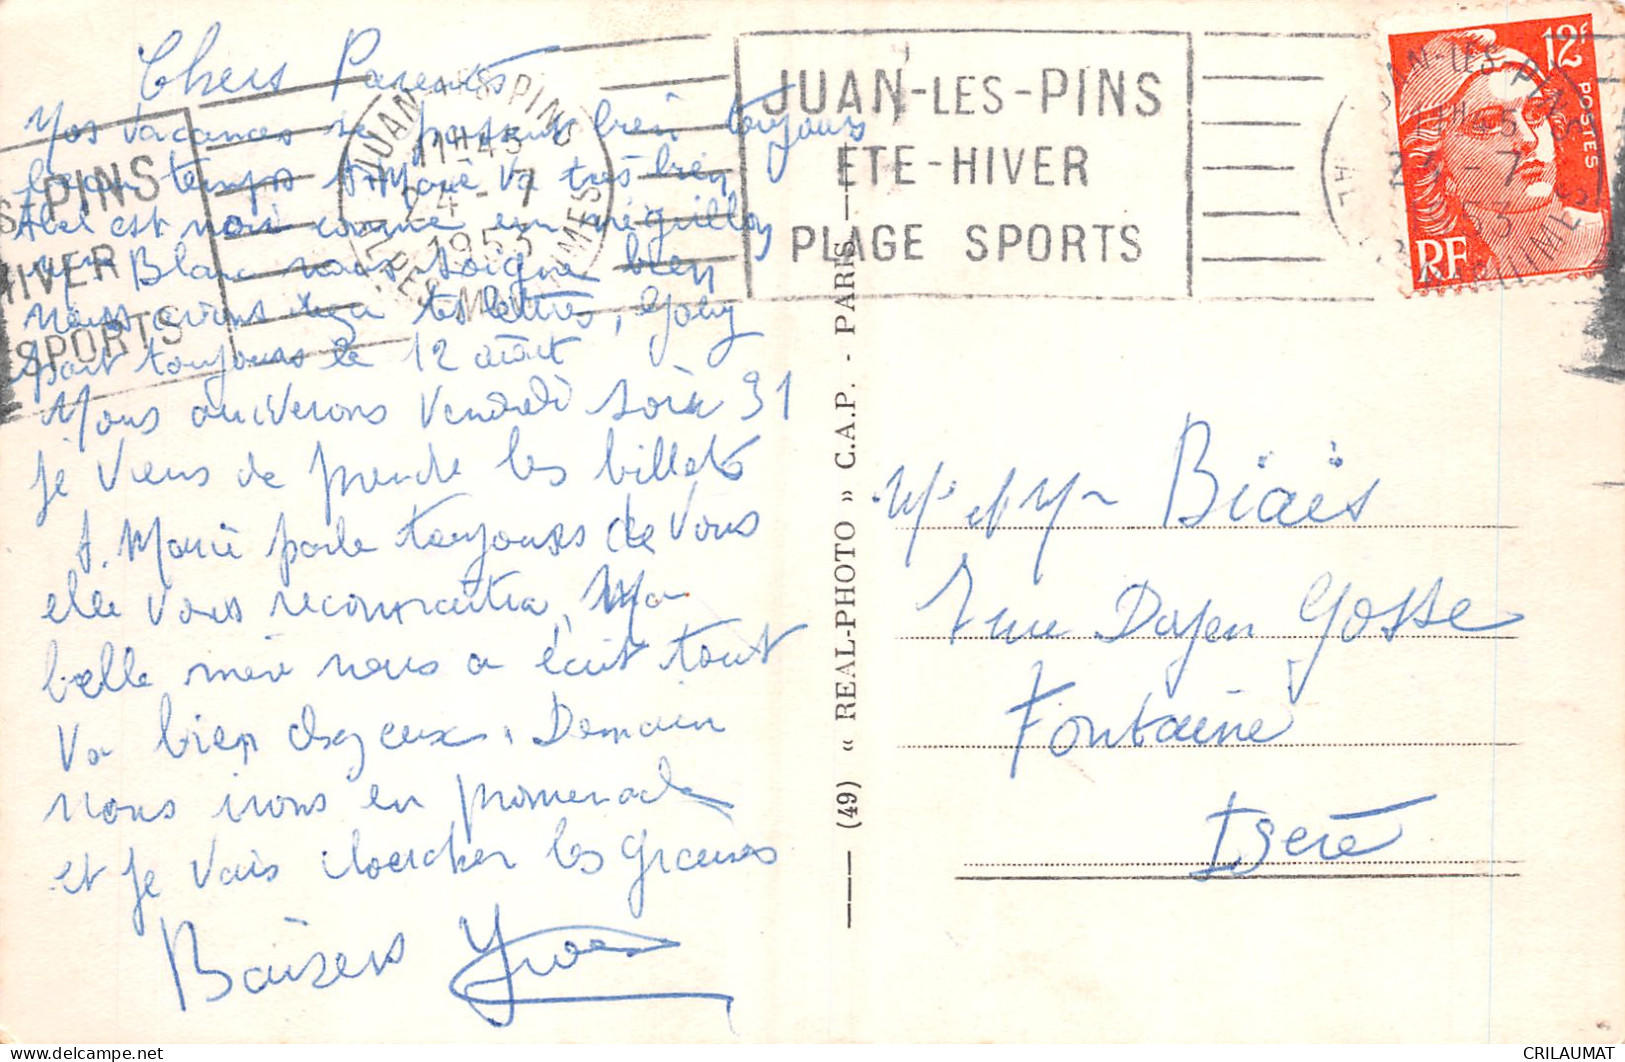 Chers Parents
Nos vacances se passent bien toujours
beau temps A. Marie va très bien
Abel est noir comme un
Blanc nous soigne bien
nous avons reçu tes lettres, Gaby
part toujours le 12 août
Nous arriverons Vendredi soir 31
je viens de prendre les billets
A. Marie parle toujours de vous
elle vous reconnaitra, Ma
belle mère nous a écrit tout
va bien chez eux. Demain
nous irons en promenade
et je vais chercher les graines
Baisers
S PINS
HIVER
SPORTS
JUAN-LES-PINS
11H45
24-7
1953
ALPES MARITIMES
JUAN-LES-PINS
ETE-HIVER
PLAGE SPORTS
12F
POSTES
RF
(49) « REAL-PHOTO » C.A.P. - PARIS
Mr et Mme Biais
rue Doyen Gosse
Fontaine
Isère
CRILAUMAT